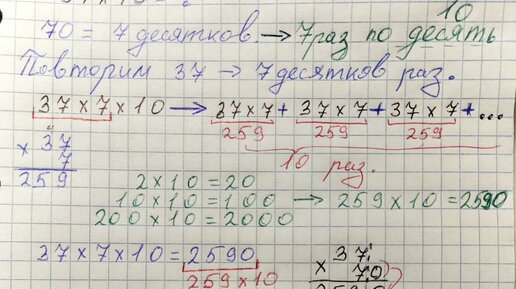 10
70 = 7 десятков → 7 раз по десять
Повторим 37 → 7 десятков раз.
37 × 7 × 10 → 37 × 7 + 37 × 7 + 37 × 7 + ...
259 259 259
10 раз.
× 37
7
259
2 × 10 = 20
10 × 10 = 100 → 259 × 10 = 2590
200 × 10 = 2000
37 × 7 × 10 = 2590
259 × 10
× 37
70